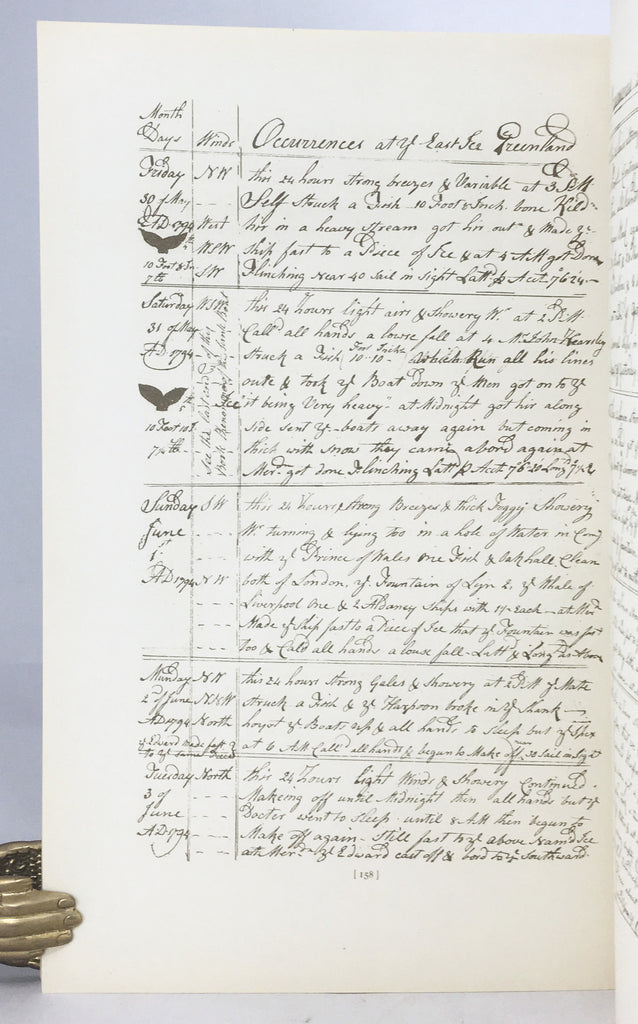 Month
Days Winds Occurrences at ye East Ice Greenland
Friday NW this 24 hours Strong breezes & Variable at 3 PM
30 of May - - - Self Struck a Fish 10 Foot bone
AD 1794 West her in a heavy Stream got his out & Made ye
WSW Ship fast to a Piece of Ice & at 4 AM got Done
10 Foot 8 In SW Flinching Near 40 Sail in Sight Lattd p Act 76 24
7th
Saturday WSW this 24 hours light airs & Showery Wr at 2 PM
31 of May Calld all hands a lowse fall at 4 Mr John
AD 1794 Struck a Fish 10 Foot 10 Inchs Which Run all his lines
oute & took ye Boat Down ye Men got on to ye
Ice it being Very heavy at Midnight got his along
10 Foot 10 I Side Sent ye boats away again but coming in
7th thick with Snow they came abord again at
Merdn got done Flinching Lattd p Act 76 20
See the last end of this
Book
Sunday SW this 24 hours Strong Breezes & thick Foggy Showery
June - - - Wr turning & lying too in a hole of Water in Comy
1st - - - with ye Prince of Wales One Fish & Oakhall Clean
AD 1794 NW both of London, ye Fountain of Lyn 2, ye Whale of
- - - Liverpool One & 2 Ships with 17 Each at
- - - Made ye Ship fast to a Piece of Ice that ye Fountain was fast
- - - too & Calld all hands a louse fall Lattd & Longd as Above
Munday NW this 24 hours Strong Gales & Showery at 2 PM ye Mate
2 of June NNW Struck a Fish & ye Harpoon broke in ye Shank
AD 1794 North hoyst ye Boats up & all hands to Sleep but ye
ye Edward made fast at 6 AM Calld all hands & begun to Make off 30 Sail in Sight
to ye same Piece
Tuesday North this 24 hours light Winds & Showery Continued
3 of - - - Makeing off until Midnight then all hands but ye
June - - - Docter went to Sleep until 8 AM then begun to
AD 1794 - - - Make off again Still fast to ye above Namd Ice
- - - at Merdn ye Edward cast off & bord to ye Southward
[ 158 ]